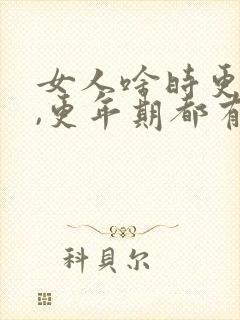 女人啥时更
,更年期都有
科貝尔